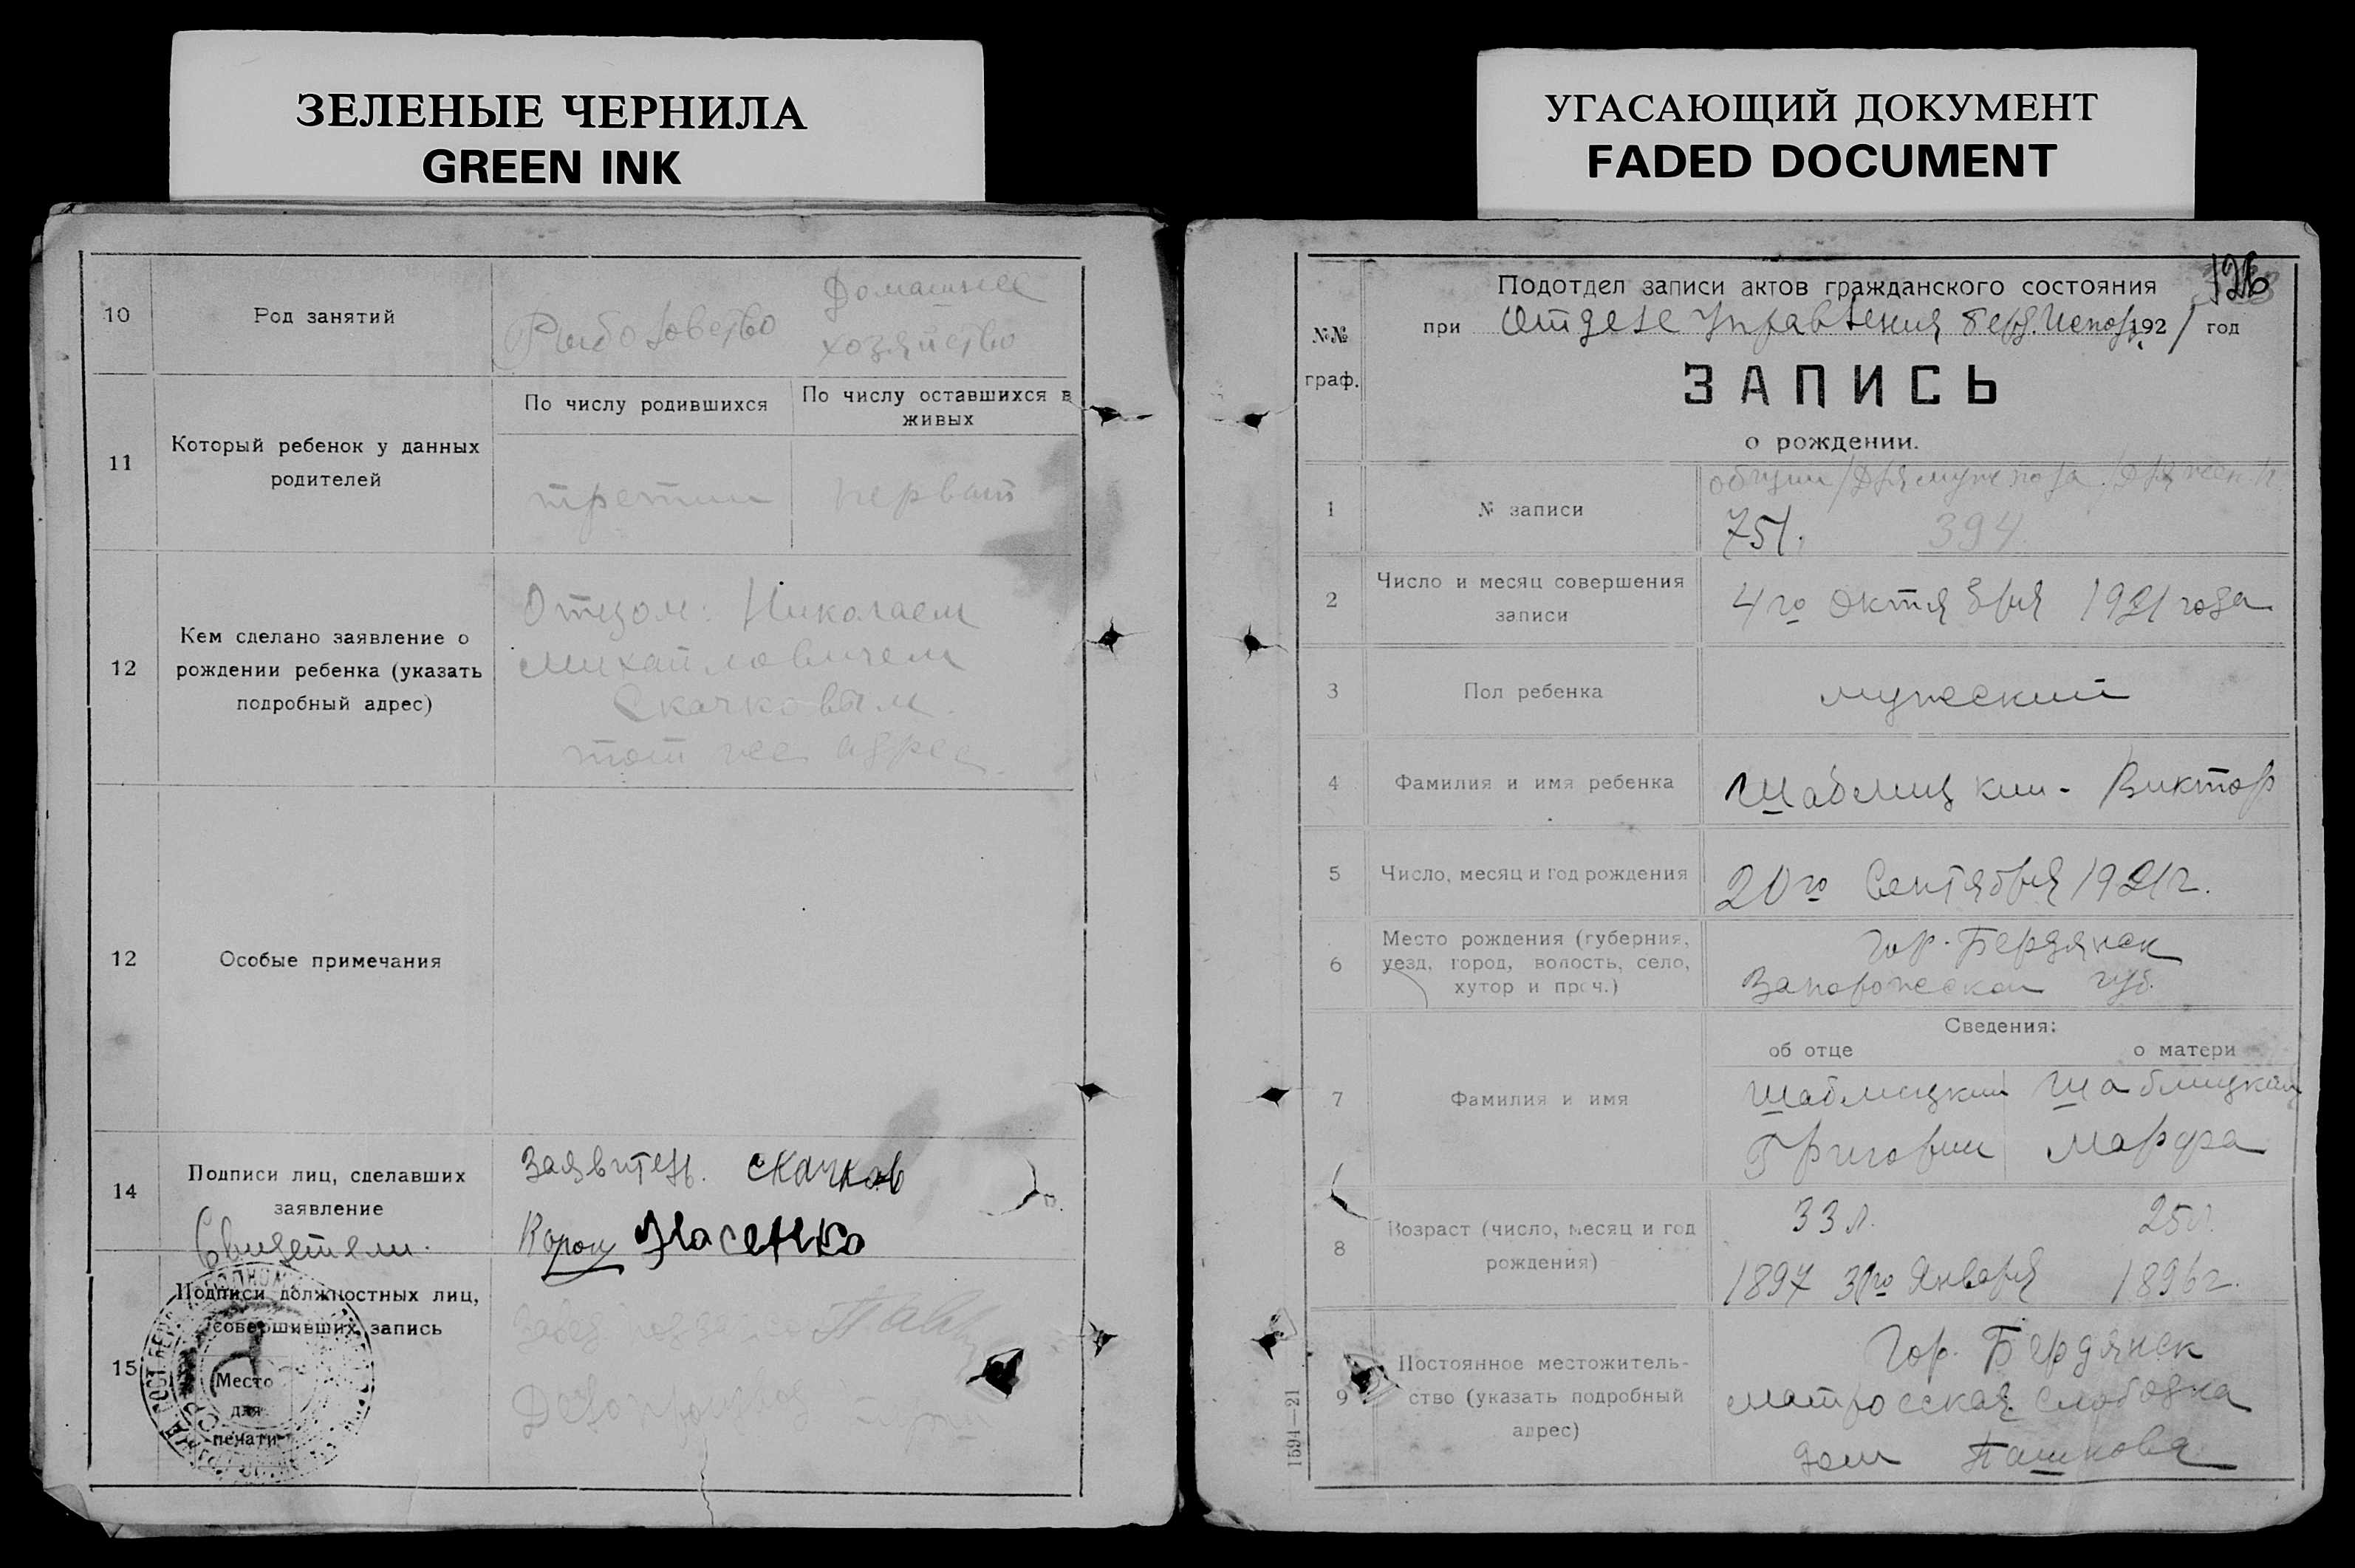 ЗЕЛЕНЫЕ ЧЕРНИЛА
GREEN INK
10
Род занятий
Рыболовство
Домашнее
хозяйство
11
Который ребенок у данных
родителей
По числу родившихся
По числу оставшихся в
живых
третий
первый
12
Кем сделано заявление о
рождении ребенка (указать
подробный адрес)
Отцом: Николаем
Михайловичем
Скачковым.
тот же адрес
12
Особые примечания
14
Подписи лиц, сделавших
заявление
Свидетели.
Заявитель. Скачков
15
Подписи должностных лиц,
совершивших запись
Место
для
печати
УГАСАЮЩИЙ ДОКУМЕНТ
FADED DOCUMENT
126
№№
граф.
Подотдел записи актов гражданского состояния
при Отделе Управления Берд. 1921 год
ЗАПИСЬ
о рождении.
1
№ записи
общий / Для муж пола / Для жен п
751. 394
2
Число и месяц совершения
записи
4го Октября 1921 года
3
Пол ребенка
мужеский
4
Фамилия и имя ребенка
Шаблицкий - Виктор
5
Число, месяц и год рождения
20го Сентября 1921 г.
6
Место рождения (губерния,
уезд, город, волость, село,
хутор и проч.)
гор. Бердянск
Запорожской губ.
Сведения:
об отце
о матери
7
Фамилия и имя
Шаблицкий
Григорий
Шаблицкая
Марфа
8
Возраст (число, месяц и год
рождения)
33 л.
25 л.
1897 31го Января
1896 г.
9
Постоянное местожитель-
ство (указать подробный
адрес)
Гор. Бердянск
Матросская Слободка
дом Пашкова
1594—21